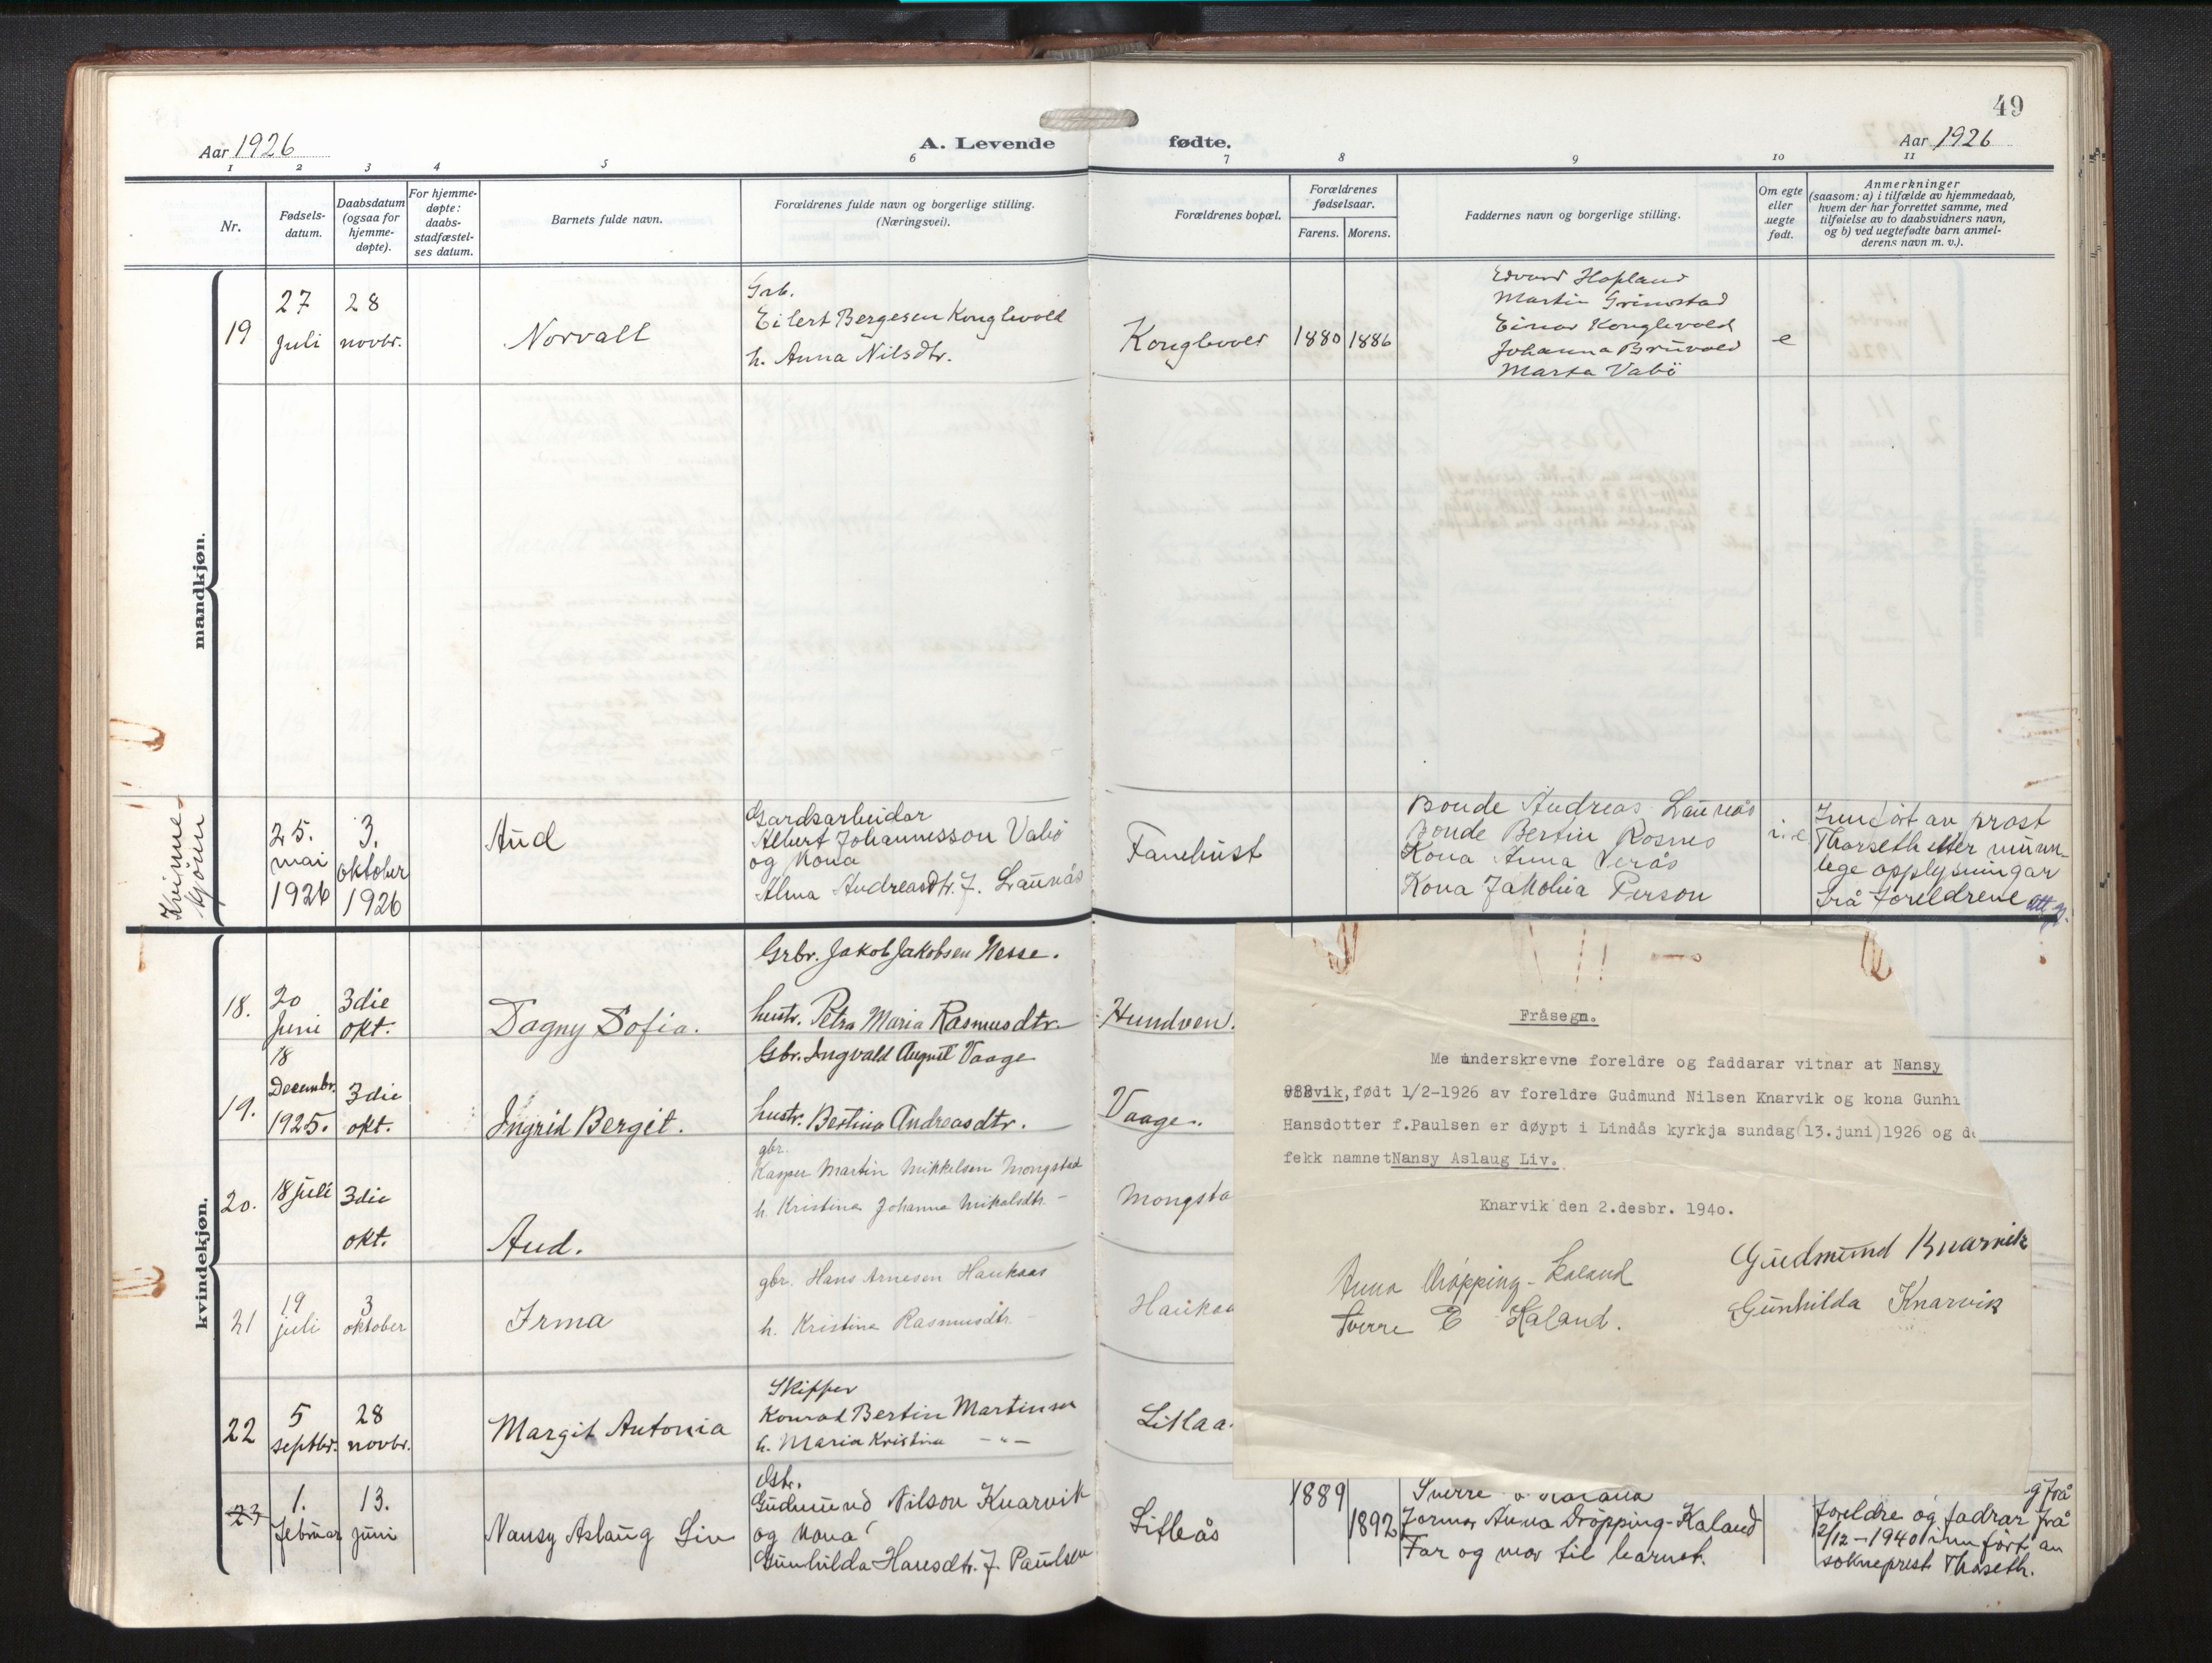 49
Aar 1926
A. Levende
fødte.
Aar 1926
1 2 3 4 5 6 7 8 9 10 11
Nr.
Fødsels-
datum.
Daabsdatum
(ogsaa for
hjemme-
døpte).
For hjemme-
døpte:
daabs-
stadfæstel-
ses datum.
Barnets fulde navn.
Forældrenes fulde navn og borgerlige stilling.
(Næringsvei).
Forældrenes bopæl.
Forældrenes
fødselsaar.
Farens. Morens.
Faddernes navn og borgerlige stilling.
Om egte
eller
uegte
født.
Anmerkninger
(saasom: a) i tilfælde av hjemmedaab,
hvem der har forrettet samme, med
tilføielse av to daabsvidners navn,
og b) ved uegtefødte barn anmel-
derens navn m. v.).
mandkjøn.
19
27
juli
28
novbr.
Norvall
Grb.
Eilert Bergesen Konglevold
h. Anna Nilsdtr.
Konglevold
1880 1886
Edvard Hopland
Martin Grimstad
Einar Konglevold
Johanna Bruvold
Marta Vabö
e
Kvinne-
kjønn
25.
mai
1926
3.
oktober
1926
Aud
Gardsarbeidar
Albert Johannesson Vabö
og kona
Alma Andreasdtr. f. Launås
Fanebust
Bonde Andreas Launås
Bonde Bertin Rosnes
Kona Anna Verås
Kona Jakobia Person
Innført av prost
Thorseth etter munn-
lege opplysningar
frå foreldrene
kvindekjøn.
18.
20
Juni
3die
okt.
Dagny Sofia.
Grbr. Jakob Jakobsen Nesse.
hustr. Petra Maria Rasmusdtr.
Hundven.
19.
18
Decembr.
1925.
3die
okt.
Ingrid Bergit.
Gbr. Ingvald August Vaage
hustr. Bertina Andreasdtr.
Vaage.
20.
18 juli
3die
okt.
Aud.
gbr.
Kasper Martin Mikkelsen Mongstad
h. Kristina Johanna Mikalsdtr. -
Mongsta
21
19
juli
3
oktober
Irma
gbr. Hans Arnesen Haukaas
h. Kristine Rasmusdtr.
Haukaa
22
5
septbr.
28
novbr.
Margit Antonia
Skipper
Konrad Bertin Martinsen
h. Maria Kristina - " -
Litlaa
23
1.
februar
13.
juni
Nansy Aslaug Liv
Gudmund Nilson Knarvik
og kona
Gunhilda Hansdtr. f. Paulsen
Litleås
1889
1892
Sverre
Anna Dröpping-Kaland
Far og mor til barnet.
frå
foreldre og fadrar frå
2/12-1940 innført av
sokneprest Thorseth.
Fråsegn.
Me underskrevne foreldre og faddarar vitnar at Nansy
vik, født 1/2-1926 av foreldre Gudmund Nilsen Knarvik og kona Gunhi
Hansdotter f.Paulsen er døypt i Lindås kyrkja sundag (13.juni) 1926 og d
fekk namnet Nansy Aslaug Liv.
Knarvik den 2.desbr. 1940.
Anna Dröpping-Kaland
Sverre E Kaland.
Gudmund Knarvik
Gunhilda Knarvik